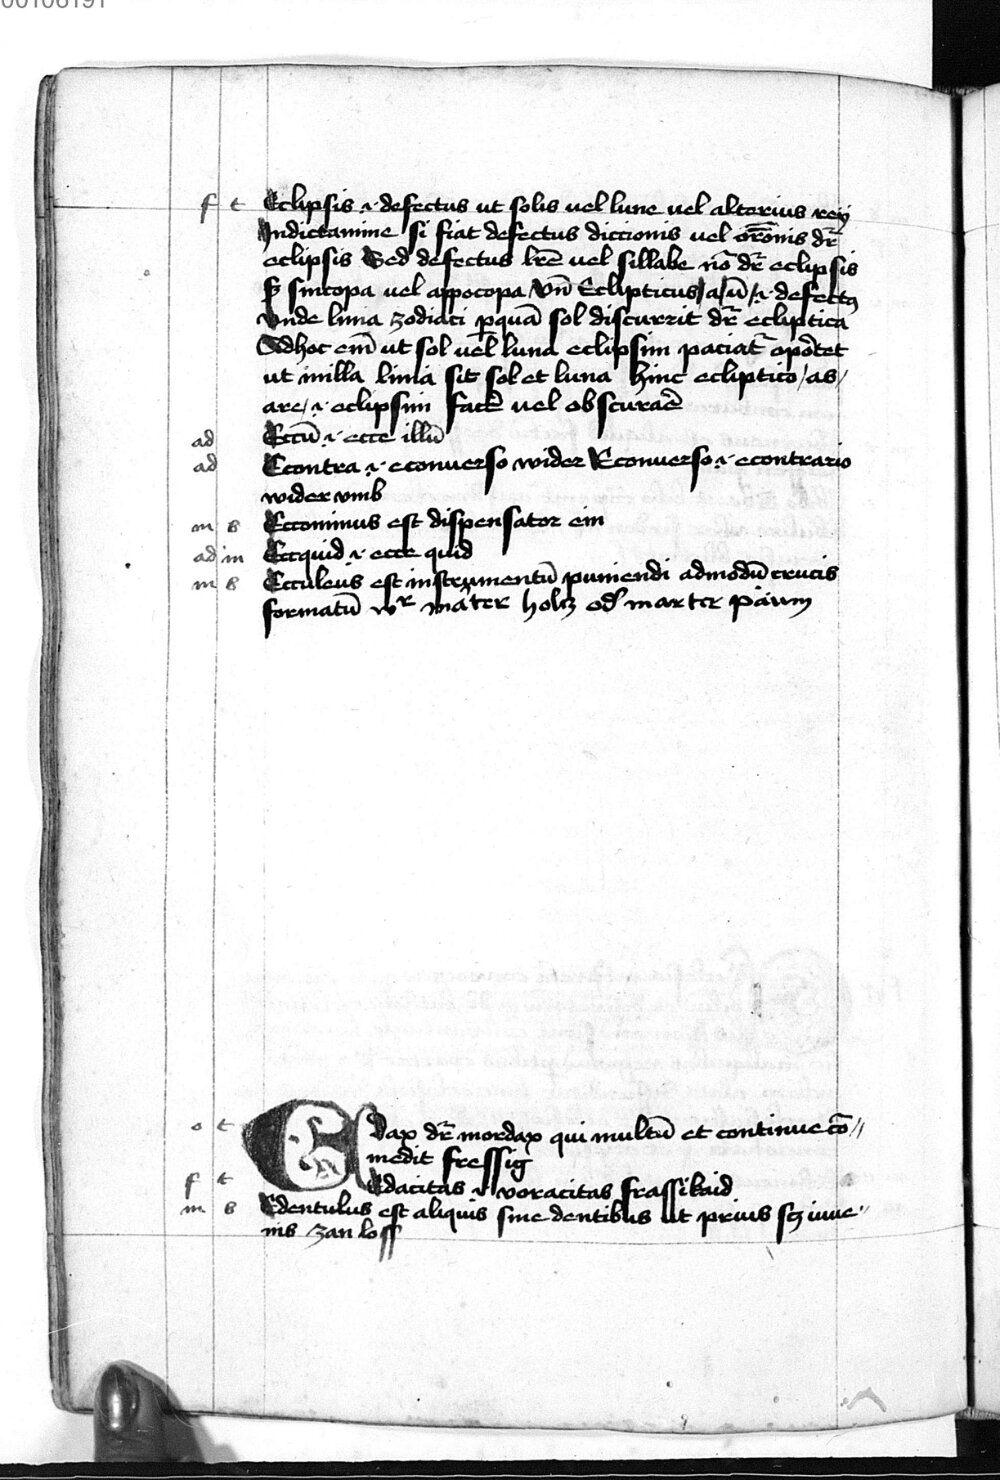 00106191
f t Eclipsis .i. defectus ut solis uel lune uel alterius rey
Indictamine si fiat defectus diccionis uel or̄onis dr̄
eclipsis Sed defectus lr̄e uel sillabe nō dr̄ eclipsis
sincopa uel appocopa Vn̄ Eclipticus / a / ū / .i. defectꝫ
Vnde linia zodiaci ꝑ quā sol discurrit dr̄ ecliptica
Adhoc em̄ ut sol uel luna eclipsim paciat᷑ oportet
ut in illa linia sit sol et luna hinc ecliptico / as /
are / .i. eclipsim facē vel obscurarē
ad Eccū .i. ecce illū
ad Econtra .i. econuerso wider Econuerso .i. econtrario
wider vmb
m s Economus est dispensator ein
ad in Ecquid .i. ecce quid
m s Eculeus est instrumentū puniendi admodū crucis
formatū marter holcz od᷑ marter pawm
o t Edax dr̄ mordax qui multū et continue cō //
medit fressig
f t Edacitas .i. voracitas frassikaid
m s Edentulus est aliquis sine dentibus ut prius scꝫ iuue //
nis zan loss